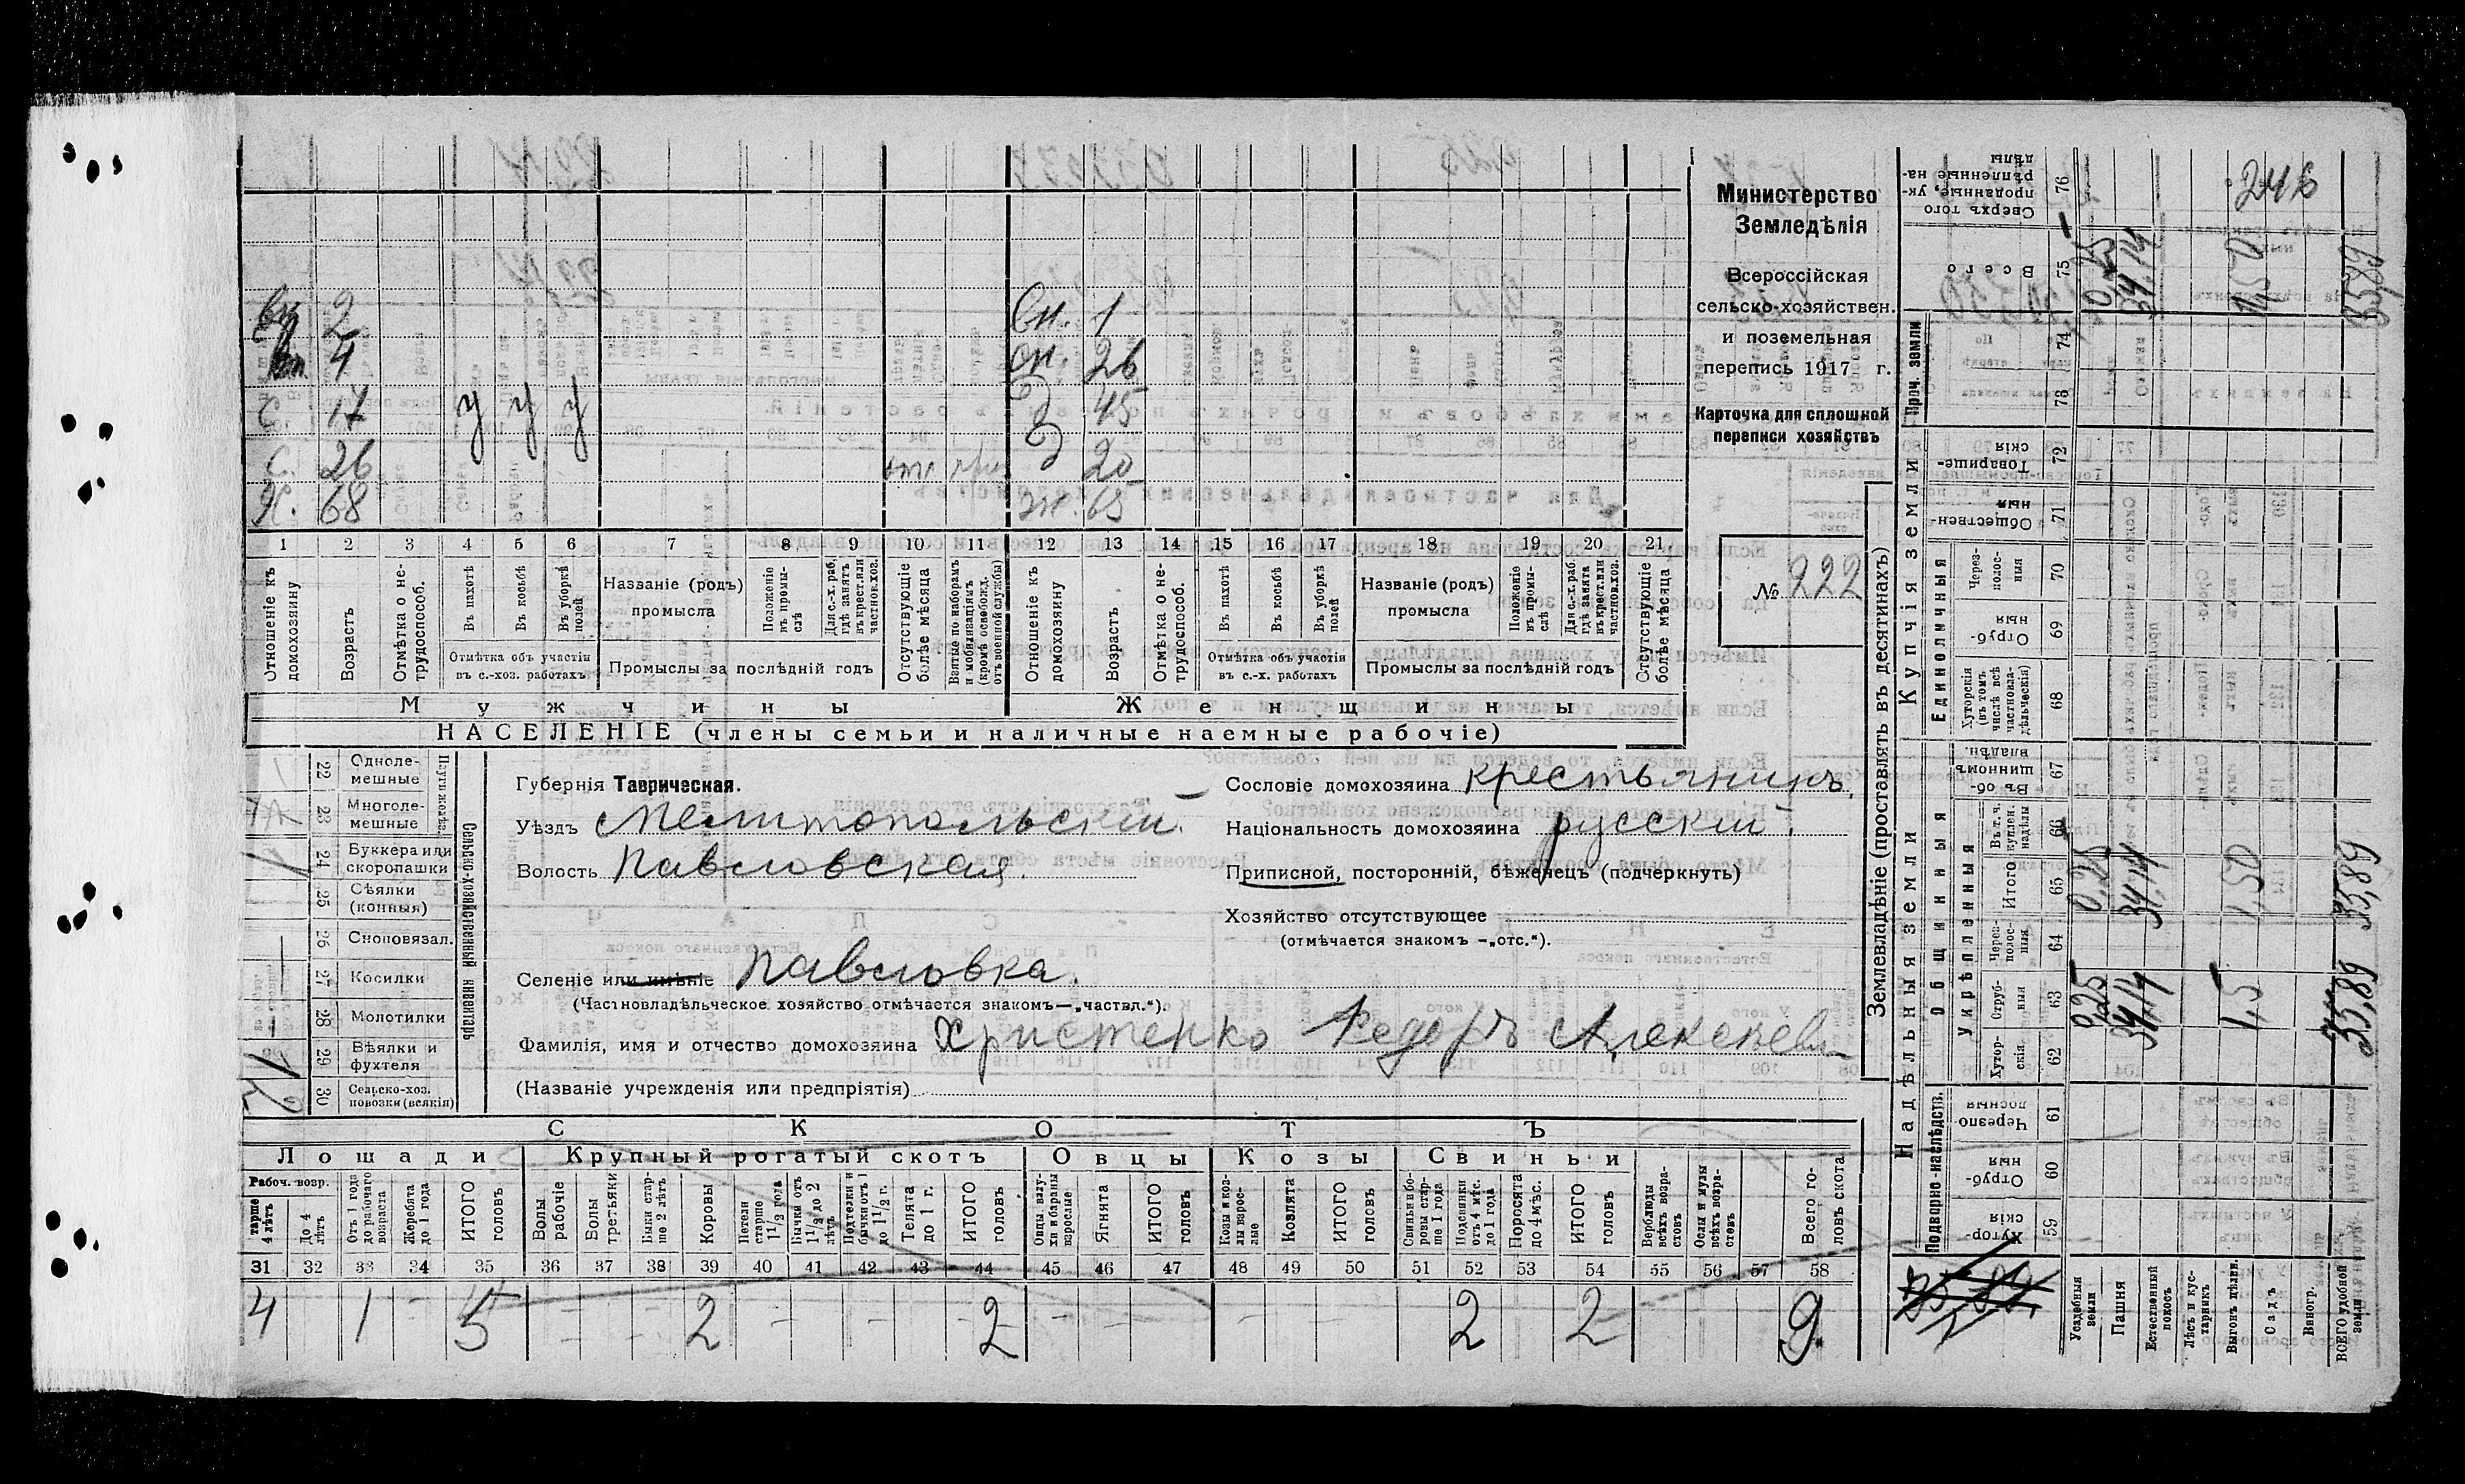 вн. 2 вн. 1
вн. 4 он. 26
С 17 у у у д 45
С. 26 отс. д 20
Х. 68 ж. 65
1 2 3 4 5 6 7 8 9 10 11 12 13 14 15 16 17 18 19 20 21
Отношеніе къ домохозяину
Возрастъ
Отмѣтка о нетрудоспособ.
Въ пахотѣ
Въ косьбѣ
Въ уборкѣ полей
Отмѣтка объ участіи въ с.-хоз. работахъ
Названіе (родъ) промысла
Положеніе въ промыслѣ
Для с.-х. раб. гдѣ занятъ въ крест. или частнов. хоз.
Промыслы за послѣдній годъ
Отсутствующіе болѣе мѣсяца
Взятые по наборамъ и мобилизаціямъ (кромѣ освобожд. отъ военной службы)
Отношеніе къ домохозяину
Возрастъ
Отмѣтка о нетрудоспособ.
Въ пахотѣ
Въ косьбѣ
Въ уборкѣ полей
Отмѣтка объ участіи въ с.-х. работахъ
Названіе (родъ) промысла
Положеніе въ промыслѣ
Для с.-х. раб. гдѣ занята въ крест. или частнов. хоз.
Промыслы за послѣдній годъ
Отсутствующіе болѣе мѣсяца
Мужчины Женщины
НАСЕЛЕНІЕ (члены семьи и наличные наемные рабочіе)
Министерство
Земледѣлія
Всероссійская
сельско-хозяйствен.
и поземельная
перепись 1917 г.
Карточка для сплошной
переписи хозяйствъ
№ 222
Сельско-хозяйственный инвентарь
Плуги желѣз.
22 Одноле-мешные
23 Многоле-мешные 1
24 Буккера или скоропашки 1
25 Сѣялки (конныя)
26 Сноповязал.
27 Косилки 1
28 Молотилки
29 Вѣялки и фухтеля 1
30 Сельско-хоз. повозки (всякія) 2
Губернія Таврическая.
Уѣздъ Мелитопольскій.
Волость Павловская.
Селеніе или имѣніе Павловка.
(Частновладѣльческое хозяйство отмѣчается знакомъ—„частвл.“).
Фамилія, имя и отчество домохозяина Христенко Федоръ Алексѣев.
(Названіе учрежденія или предпріятія)
Сословіе домохозяина крестьянинъ.
Національность домохозяина русскій.
Приписной, посторонній, бѣженецъ (подчеркнуть)
Хозяйство отсутствующее
(отмѣчается знакомъ —„отс.“).
СКОТЪ
Лошади Крупный рогатый скотъ Овцы Козы Свиньи
Рабоч. возр.
тарше 4 лѣтъ
До 4 лѣтъ
Отъ 1 года до рабочаго возраста
Жеребята до 1 года
ИТОГО головъ
Волы рабочіе
Волы третьяки
Быки старше 2 лѣтъ
Коровы
Нетели старше 1½ года
Бычки отъ 1½ до 2 лѣтъ
Подтелки и бычки отъ 1 до 1½ г.
Телята до 1 г.
ИТОГО головъ
Овцы валухи и бараны взрослые
Ягнята
ИТОГО головъ
Козы и козлы взрослые
Козлята
ИТОГО головъ
Свиньи и боровы старше 1 года
Подсвинки отъ 4 мѣс. до 1 года
Поросята до 4 мѣс.
ИТОГО головъ
Верблюды всѣхъ возрастовъ
Ослы и мулы всѣхъ возрастовъ
Всего головъ скота
31 32 33 34 35 36 37 38 39 40 41 42 43 44 45 46 47 48 49 50 51 52 53 54 55 56 57 58
4 1 - 5 - - - 2 - - - - 2 - - - - 2 2 9.
Землевладѣніе (проставлять въ десятинахъ)
Надѣльныя земли Купчія земли Проч. земли
Подворно-наслѣдств. Общинныя Единоличныя
Укрѣпленныя
Сверхъ того проданные, укрѣпленные надѣлы 76 —
Всего 75 34,14 1,50 35,89
74
73
Товарищескія 72
Общественныя 71
Черезполосныя 70
Отрубныя 69
Хуторскія (въ томъ числѣ всѣ частновладѣльческія) 68
Въ общинномъ владѣн. 67
Въ т. ч. куплен. надѣлы 66
Итого 65 0,25 34,14 1,50 35,89
Черезполосныя 64
Отрубныя 63 0,25 34,14 1,5 35,89
Хуторскія 62
Черезполосныя 61
Отрубныя 60
Хуторскія 59
Усадебныя земли
Пашня
Естественный покосъ
Лѣсъ и кустарникъ
Выгонъ цѣлин.
Садъ
Виногр.
ВСЕГО удобной земли